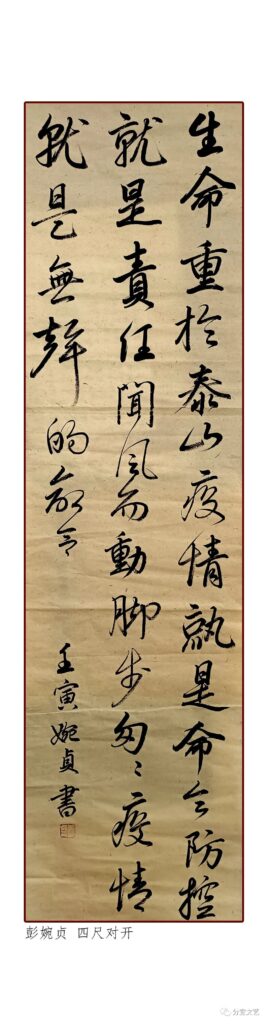 生命重於泰山疫情就是命令防控
就是責任聞風而動脚步匆々疫情
就是無聲的命令
壬寅婉貞書
彭婉贞 四尺对开
分宜文艺